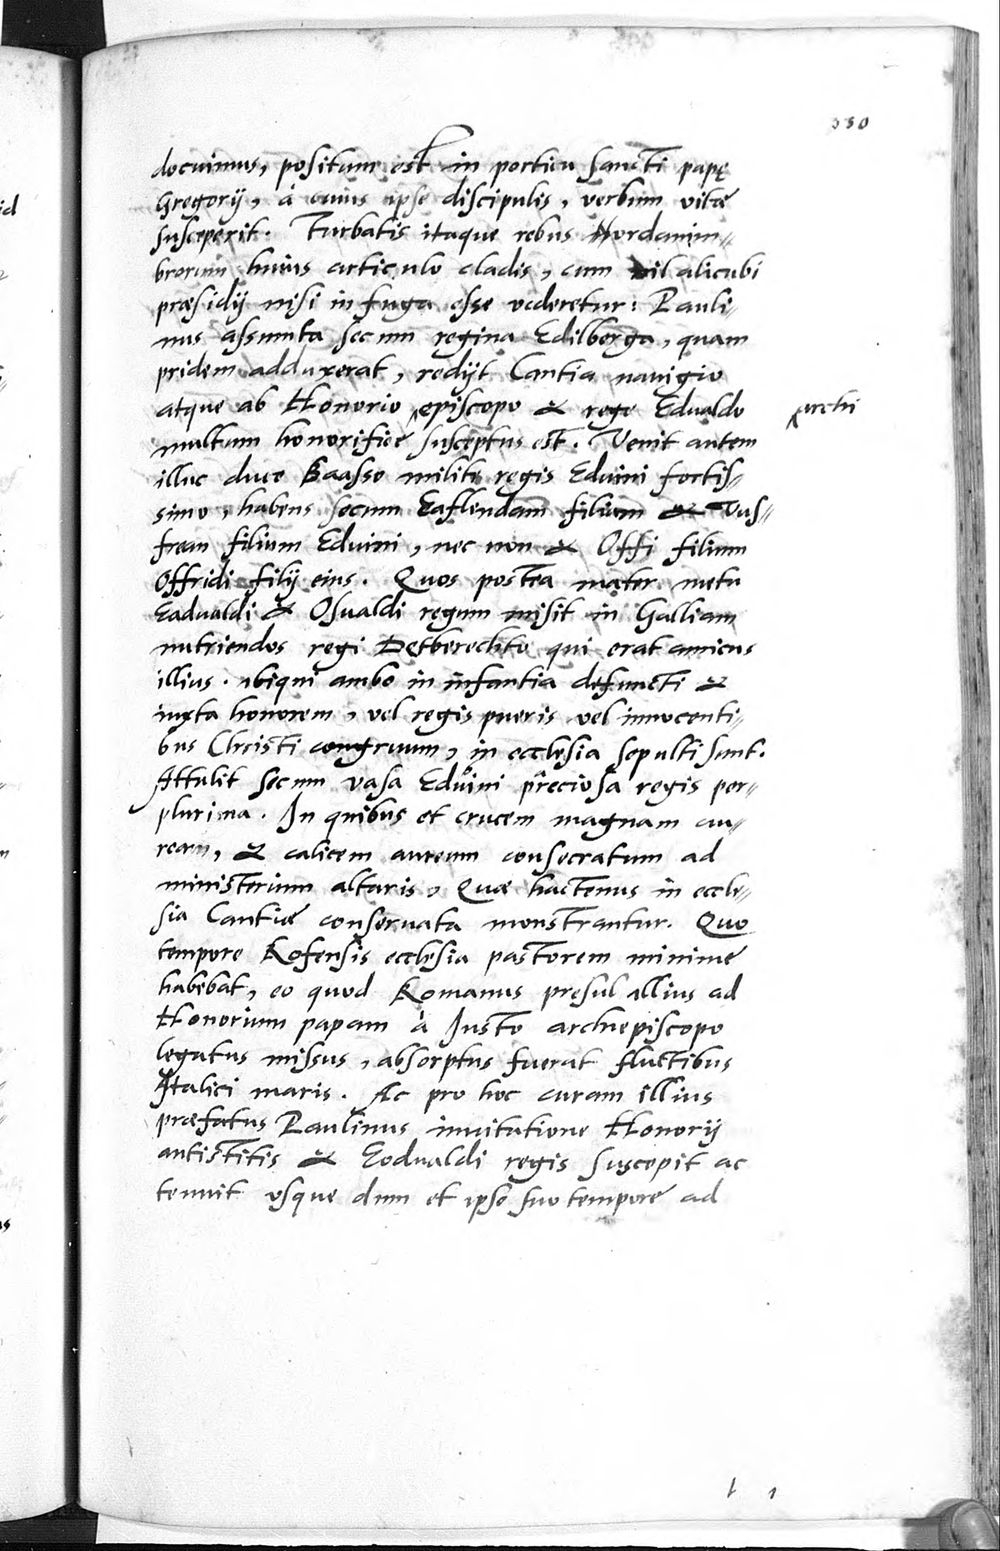 330
docuimus, positum est in porticu sancti papę
Gregorij, à cuius ipse discipulis, verbum vitæ
susceperit. Turbatis itaque rebus Nordanim-
brorum huius articulo cladis, cum nil alicubi
præsidij nisi in fuga esse videretur: Pauli-
nus assumta secum regina Edilberga, quam
pridem adduxerat, redijt Cantia nauigio
atque ab Honorio episcopo & rege Edualdo archi
multum honorifice susceptus est. Venit autem
illuc duce Baasso milite regis Eduini fortis-
simo, habens secum Eaflendam filiam & Vus-
frean filium Eduini, nec non & Offi filium
Offridi filij eius. Quos postea mater metu
Eadualdi & Osualdi regum misit in Galliam
nutriendos regi Detberechto qui erat amicus
illius. ibiqui ambo in infantia defuncti &
iuxta honorem, vel regis pueris vel innocenti-
bus Christi congruum, in ecclesia sepulti sunt.
Attulit secum vasa Eduini preciosa regis per-
plurima. In quibus et crucem magnam au-
ream, & calicem aureum consecratum ad
ministerium altaris, Quæ hactenus in eccle-
sia Cantiæ conseruata monstrantur. Quo
tempore Rofensis ecclesia pastorem minime
habebat, eo quod Romanus presul illius ad
Honorium papam à Iusto archiepiscopo
legatus missus, absorptus fuerat fluctibus
Italici maris. Ac pro hoc curam illius
præfatus Paulinus inuitatione Honorij
antistitis & Eodualdi regis suscepit ac
tenuit vsque dum et ipse suo tempore ad